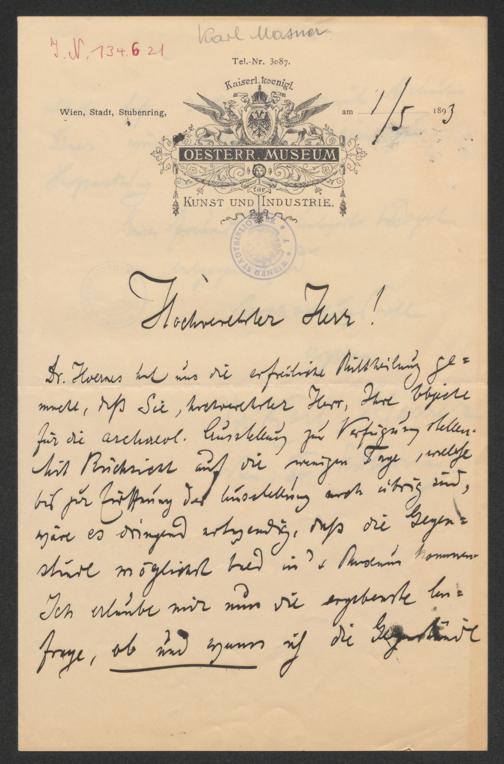 J. N. 134621
Karl Masner
Tel.-Nr. 3087.
Kaiserl. koenigl.
Wien, Stadt, Stubenring, am 1/5 1893
OESTERR. MUSEUM
für
KUNST UND INDUSTRIE.
WIENER STADTBIBLIOTHEK
Hochverehrter Herr!
Dr. Hoernes hat uns die erfreuliche Mittheilung ge=
macht, daß Sie, hochverehrter Herr, Ihre Objecte
für die archaeol. Ausstellung zur Verfügung stellen.
Mit Rücksicht auf die wenigen Tage, welche
bis zur Eröffnung der Ausstellung noch übrig sind,
wäre es dringend nothwendig, daß die Gegen=
stände möglichst bald in's Museum kommen.
Ich erlaube mir nun die ergebenste An=
frage, ob und wann ich die Gegenstände